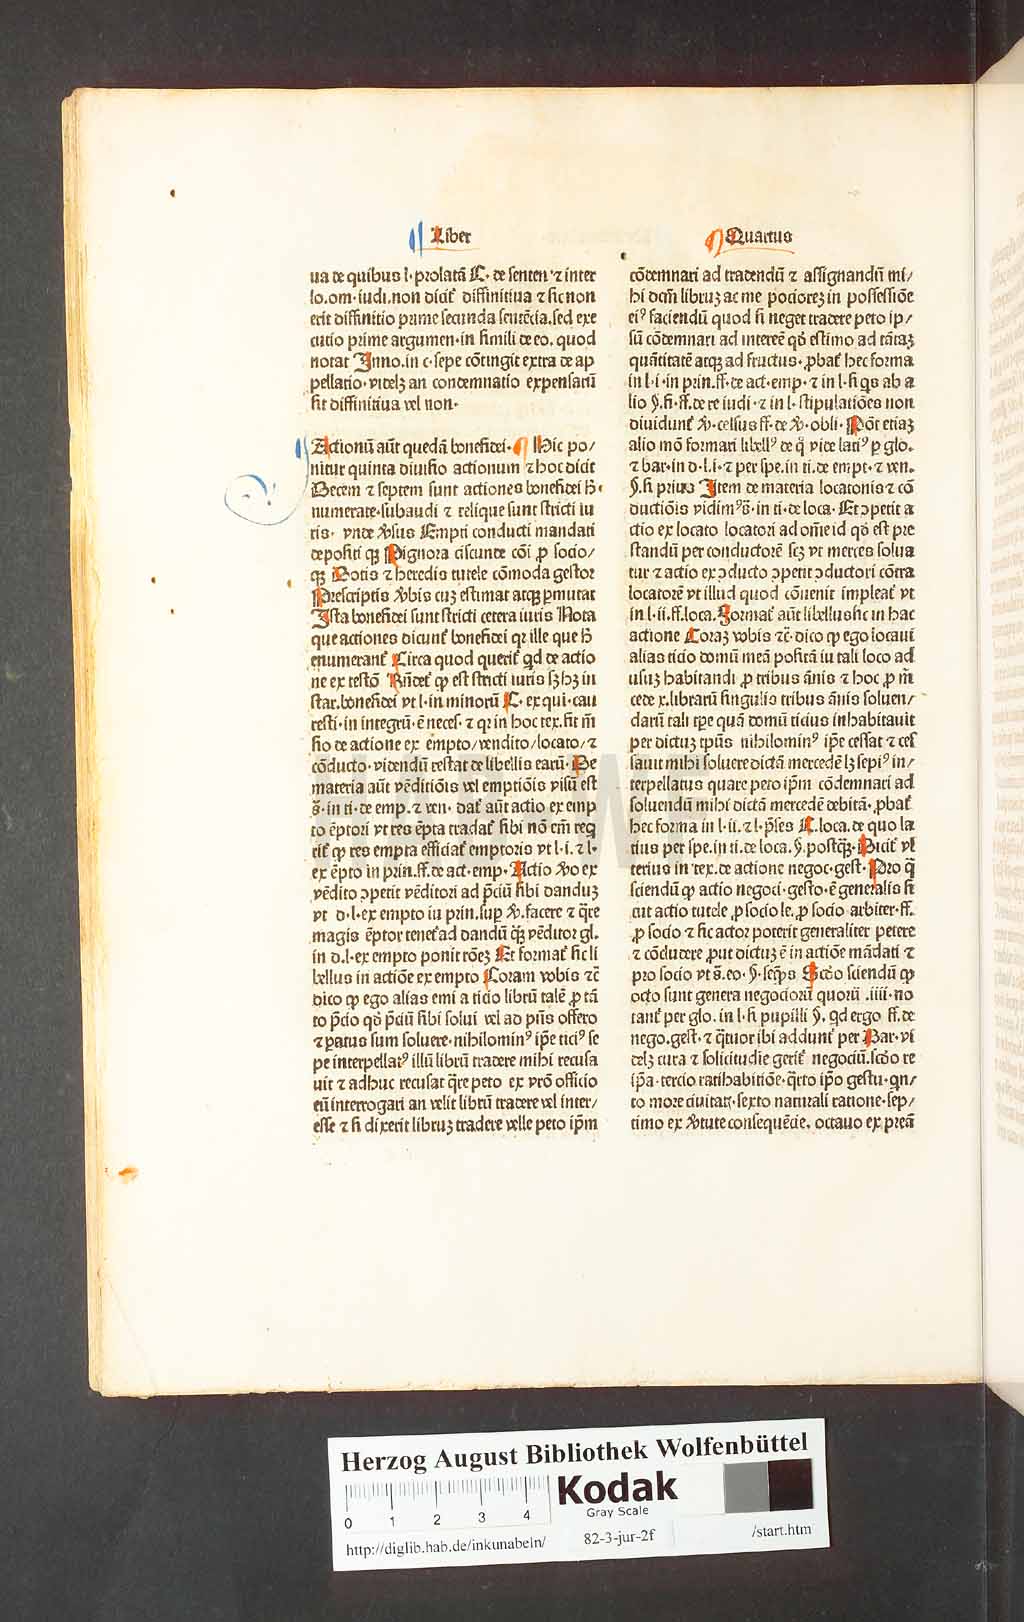 Liber
Quartus
ua de quibus l· prolatā C· de senten· ⁊ inter
lo. om· iudi. non dicit᷑ diffinitiua ⁊ sic non
erit diffinitio prime secunda sentēcia. sed exe
cutio prime argumen· in simili de eo. quod
notat Inno. in c· sepe cōtingit extra de ap
pellatio· videlꝫ an condemnatio expensarū
sit diffinitiua vel non·
Actionū aūt quedā bonefidei· Hic po/
nitur quinta diuisio actionum ⁊ hoc dicit
Decem ⁊ septem sunt actiones bonefidei h̄·
numerate· subaudi ⁊ relique sunt stricti iu
ris· vnde v̓sus Empti conducti mandati
depositi qꝫ Pignora ciscunde cōi ꝓ socio/
qꝫ Dotis ⁊ heredis tutele cōmoda gestor
Prescriptis v̓bis cuiꝫ estimat atqꝫ ꝑmutat
Ista bonefidei sunt stricti cetera iuris Nota
que actiones dicunt᷑ bonefidei qr ille que h̄
enumerant᷑ Circa quod querit᷑ qd de actio
ne ex testō Rn̄det᷑ ꝙ est stricti iuris sꝫ hꝫ in
star. bonefidei vt l· in minorū C· ex qui· cau
resti· in integrū· ē neces· ⁊ qꝛ in hoc tex. fit m̄
sio de actione ex empto/ vendito/ locato/ ⁊
cōducto· videndū restat de libellis earū· De
materia aūt vēditiōis vel emptiōis visū est
s̄· in ti· de emp. ⁊ ven· dat᷑ aūt actio ex emp
to ēptori vt res ēpta tradat᷑ sibi nō em̄ req
rit᷑ ꝙ res empta efficiat᷑ emptoris vt l· i. ⁊ l·
ex ēpto in prin. ff. de act· emp· Actio v̓o ex
vēdito ꝯpetit vēditori ad p̄ciū sibi danduꝫ
vt d· l· ex empto in prin. suꝑ v̓. facere ⁊ q̄re
magis ēptor tenet᷑ ad dandū q̄ꝫ vēditor gl.
in d. l· ex empto ponit rōeꝫ Et format᷑ sic li
bellus in actiōe ex empto Coram vobis ⁊c̄
dico ꝙ ego alias emi a ticio librū talē ꝓ tā
to p̄cio qd̓ p̄ciū sibi solui vel ad pn̄s offero
⁊ ꝑatus sum soluere· nihilominꝰ ip̄e ticiꝰ se
pe interpellatꝰ illū librū tradere mihi recusa
uit ⁊ adhuc recusat q̄re peto ex vr̄o officio
eū interrogari an velit librū tradere vel inter/
esse ⁊ si dixerit libruꝫ tradere velle peto ip̄m
cōdemnari ad tradendū ⁊ assignandū mi/
hi dcm̄ libruꝫ ac me pocioreꝫ in possessiōe
eiꝰ faciendū quod si neget tradere peto ip/
sū cōdemnari ad interēe qd̓ estimo ad tātaꝫ
quātitatē atqꝫ ad fructus· ꝓbat᷑ hec forma
in l· i· in prin. ff. de act· emp· ⁊ in l· si q̇s ab a
lio §. fi· ff. de re iudi· ⁊ in l· stipulatiōes non
diuidunt᷑ v̓· celsus ff· de v̓· obli· Pōt etiaꝫ
alio mō formari libellꝰ de q̊ vide latiꝰ ꝑ glo.
⁊ bar· in d· l. i· ⁊ per spe. in ti. de empt· ⁊ ven.
§. si priuo Item de materia locatonis ⁊ cō
ductiōis vidimꝰ s̄· in ti· de loca· Et ꝯpetit a
ctio ex locato locatori ad om̄e id qd̓ est pre
standū per conductorē scꝫ vt merces solua
tur ⁊ actio ex ꝯducto ꝯpetit ꝯductori cōtra
locatorē vt illud quod cōuenit impleat᷑ vt
in l· ii. ff. loca. Format᷑ aūt libellus sic in hac
actione Coraꝫ vobis ⁊c̄· dico ꝙ ego locaui
alias ticio domū meā positā in tali loco ad
usuꝫ habitandi ꝓ tribus ānis ⁊ hoc ꝓ m̄
cede x. librarū singulis tribus ānis soluen/
darū tali tꝑe quā domū ticius inhabitauit
per dictuꝫ tp̄us nihilominꝰ ip̄e cessat ⁊ ces
sauit mihi soluere dictā mercedē lꝫ sepiꝰ in/
terpellatus quare peto ip̄m cōdemnari ad
soluendū mihi dictā mercedē debitā· ꝓbat᷑
hec forma in l· ii. ⁊ l· p̄ses C. loca. de quo la
tius per spe. in ti. de loca. §. postq̄ꝫ· Dicit᷑ vl
terius in tex. de actione negoc· gest· Pro q̊
sciendū ꝙ actio negoci· gesto· ē generalis si
cut actio tutele ꝓ socio le. ꝓ socio arbiter· ff.
ꝓ socio ⁊ sic actor poterit generaliter petere
⁊ cōducere ꝓut dictuꝫ ē in actiōe mādati ⁊
pro socio vt s̄. eo· §· seq̄ns Scd̓o sciendū ꝙ
octo sunt genera negociorū quorū .iiii· no
tant᷑ per glo. in l· si pupilli §. qd ergo ff. de
nego. gest· ⁊ q̄tuor ibi addunt᷑ per Bar· vi
delꝫ cura ⁊ solicitudie gerit᷑ negociū. scd̓o re
ip̄a· tercio ratihabitiōe· q̄rto ip̄o gestu· qn/
to more ciuitatꝭ· sexto naturali ratione· sep/
timo ex v̓tute consequēcie. octauo ex preā
Herzog August Bibliothek Wolfenbüttel
0 1 2 3 4
Kodak
Gray Scale
http://diglib.hab.de/inkunabeln/ 82-3-jur-2f /start.htm
HAB WF